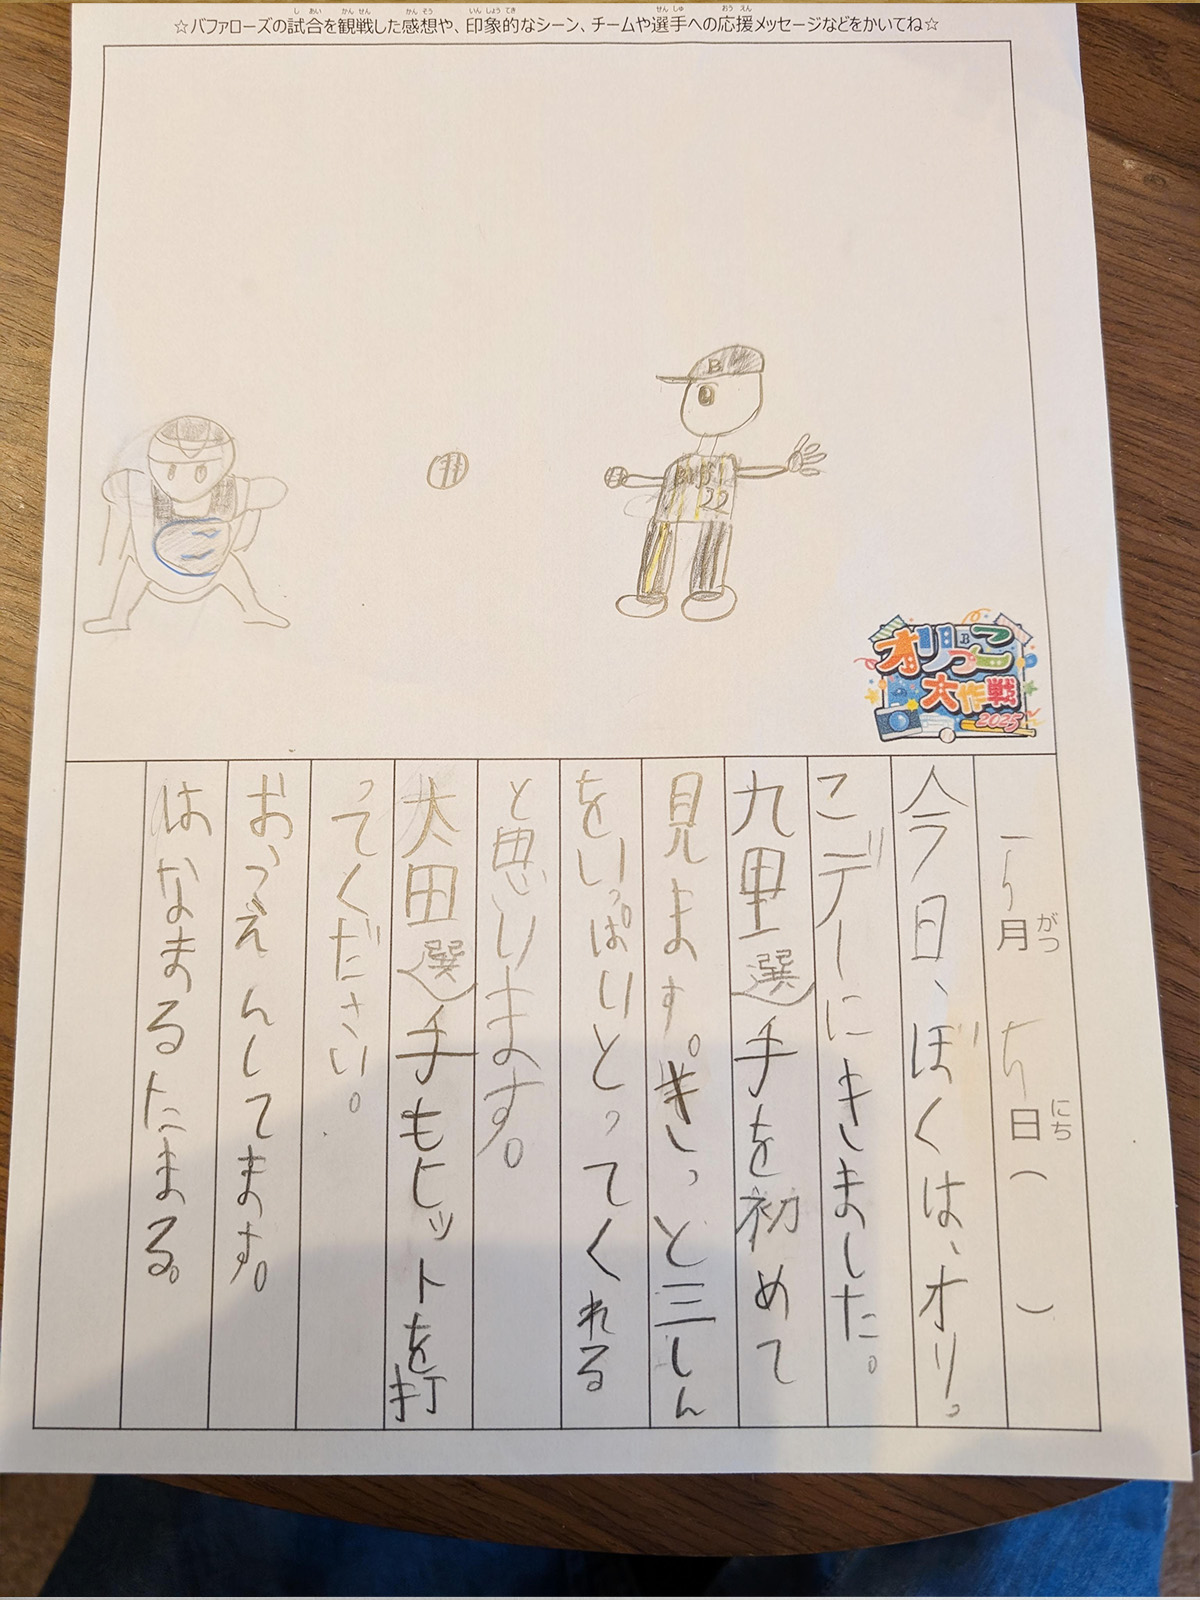 し あい かん せん かん そう いん しょう てき せん しゅ おう えん
☆バファローズの試合を観戦した感想や、印象的なシーン、チームや選手への応援メッセージなどをかいてね☆
B
オリっこ
大作戦
2025
月 日( )
がつ にち
今日、ぼくは、オリっ
こデーにきました。
九里選手を初めて
見ます。きっと三しん
をいっぱいとってくれる
と思います。
太田選手もヒットを打
ってください。
おうえんしてます。
はなまるたまる。